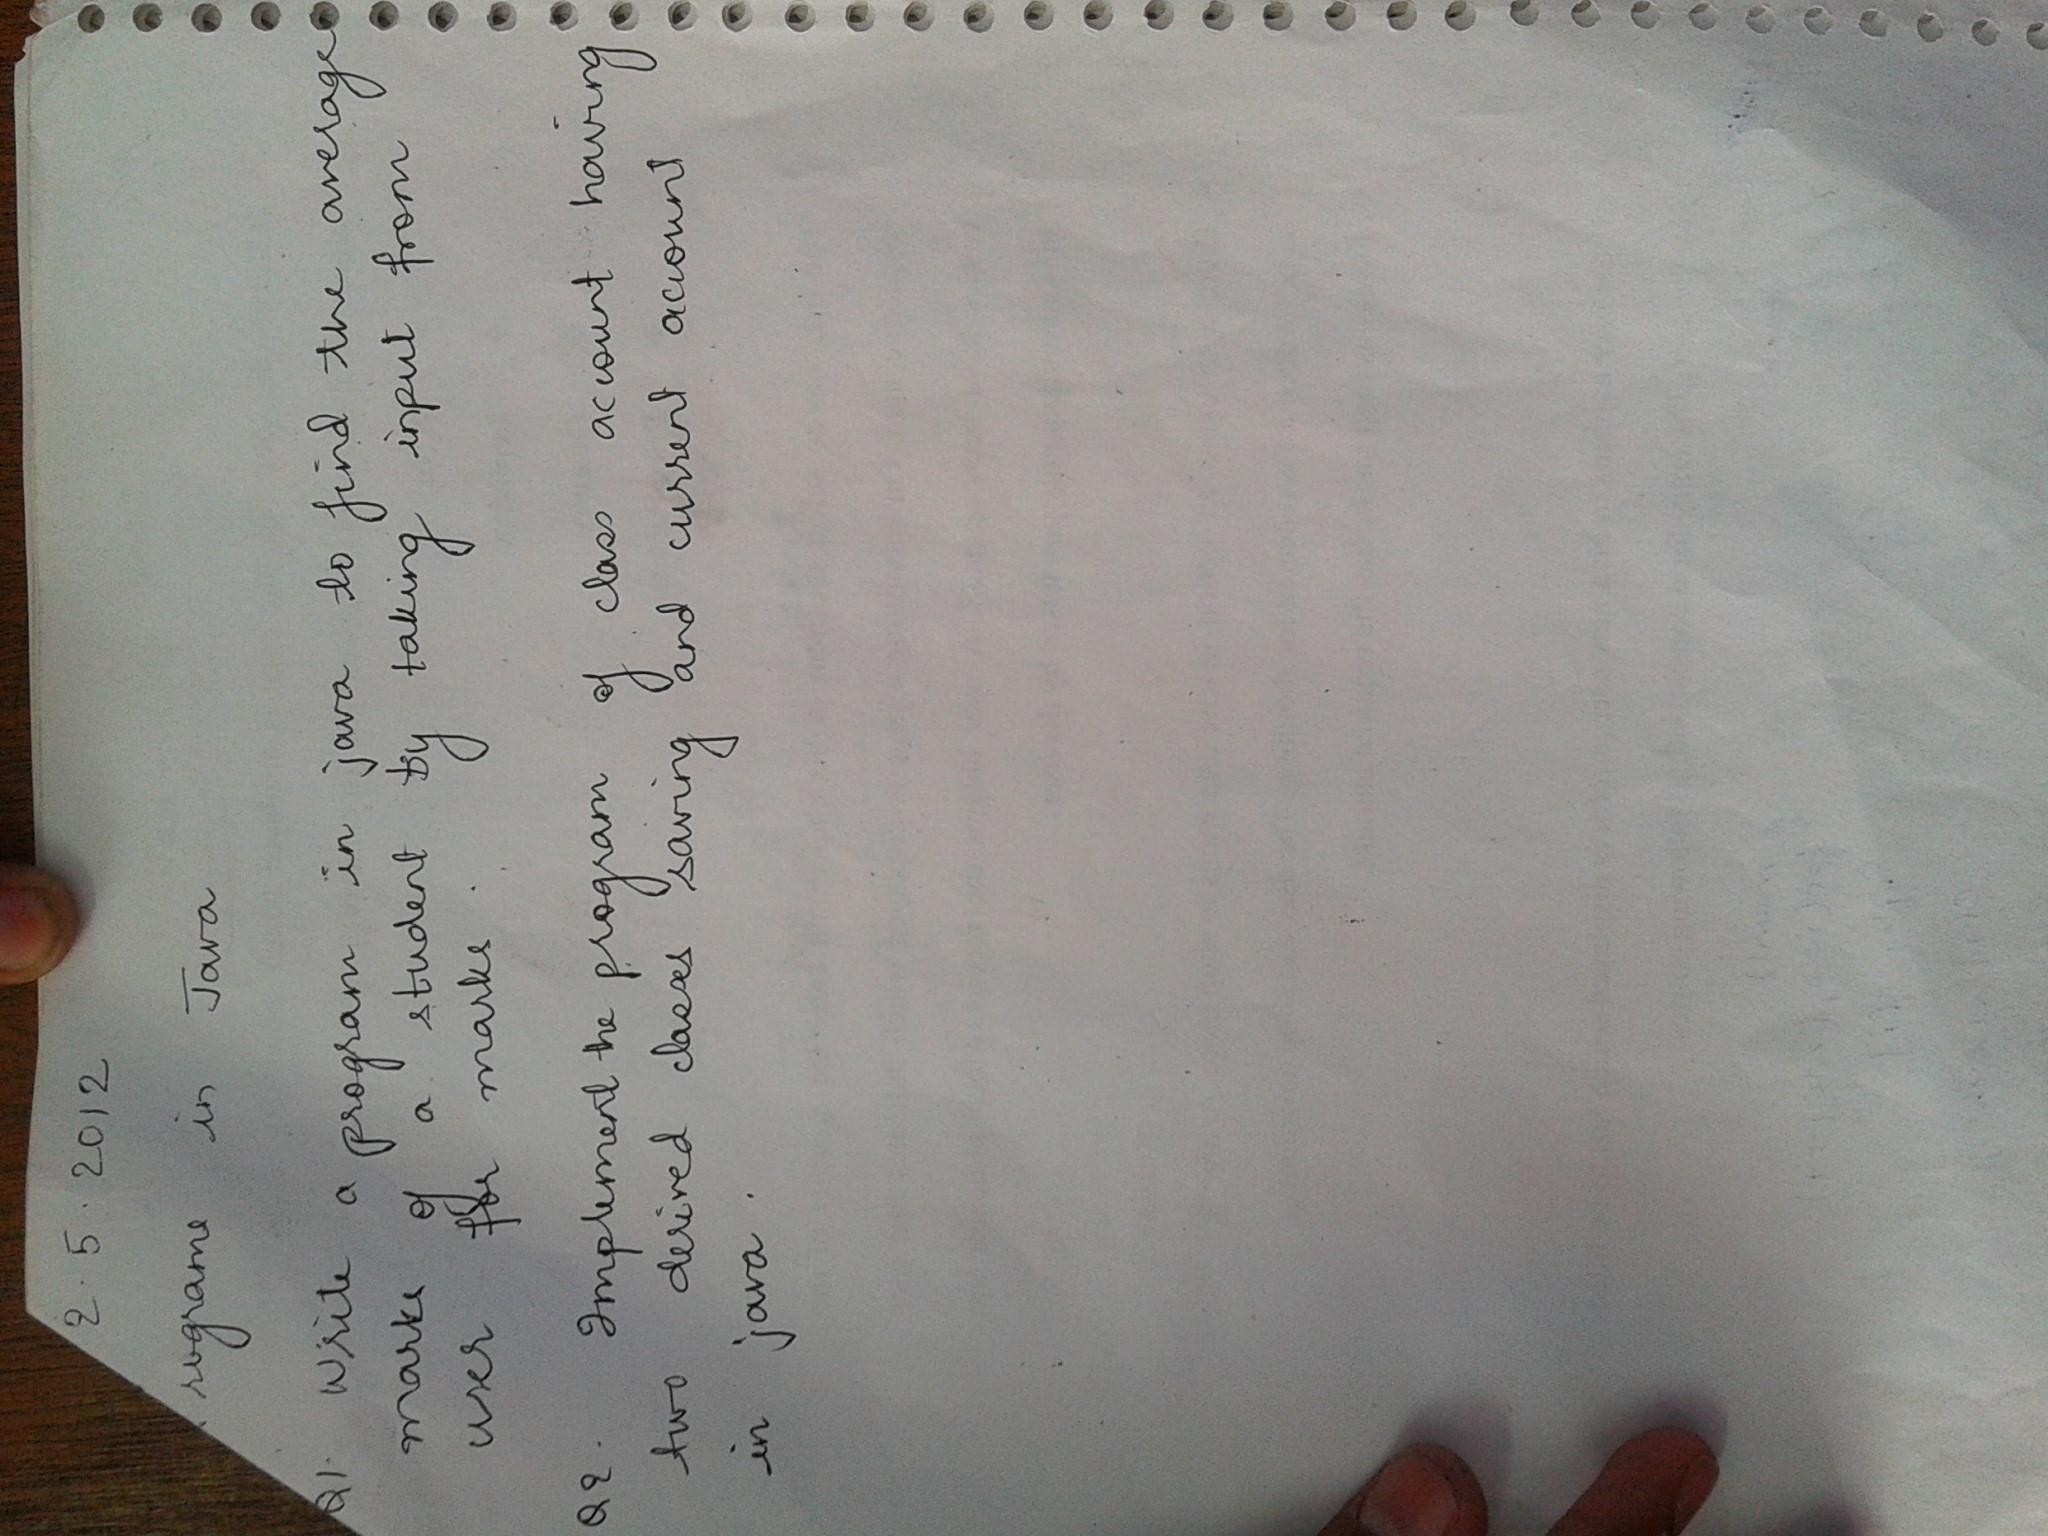 2.5.2012
rograms in Java
Q1. Write a program in java to find the average
marks of a student by taking input from
user for marks.
Q2. Implement the program of class account having
two derived classes saving and current account
in java.